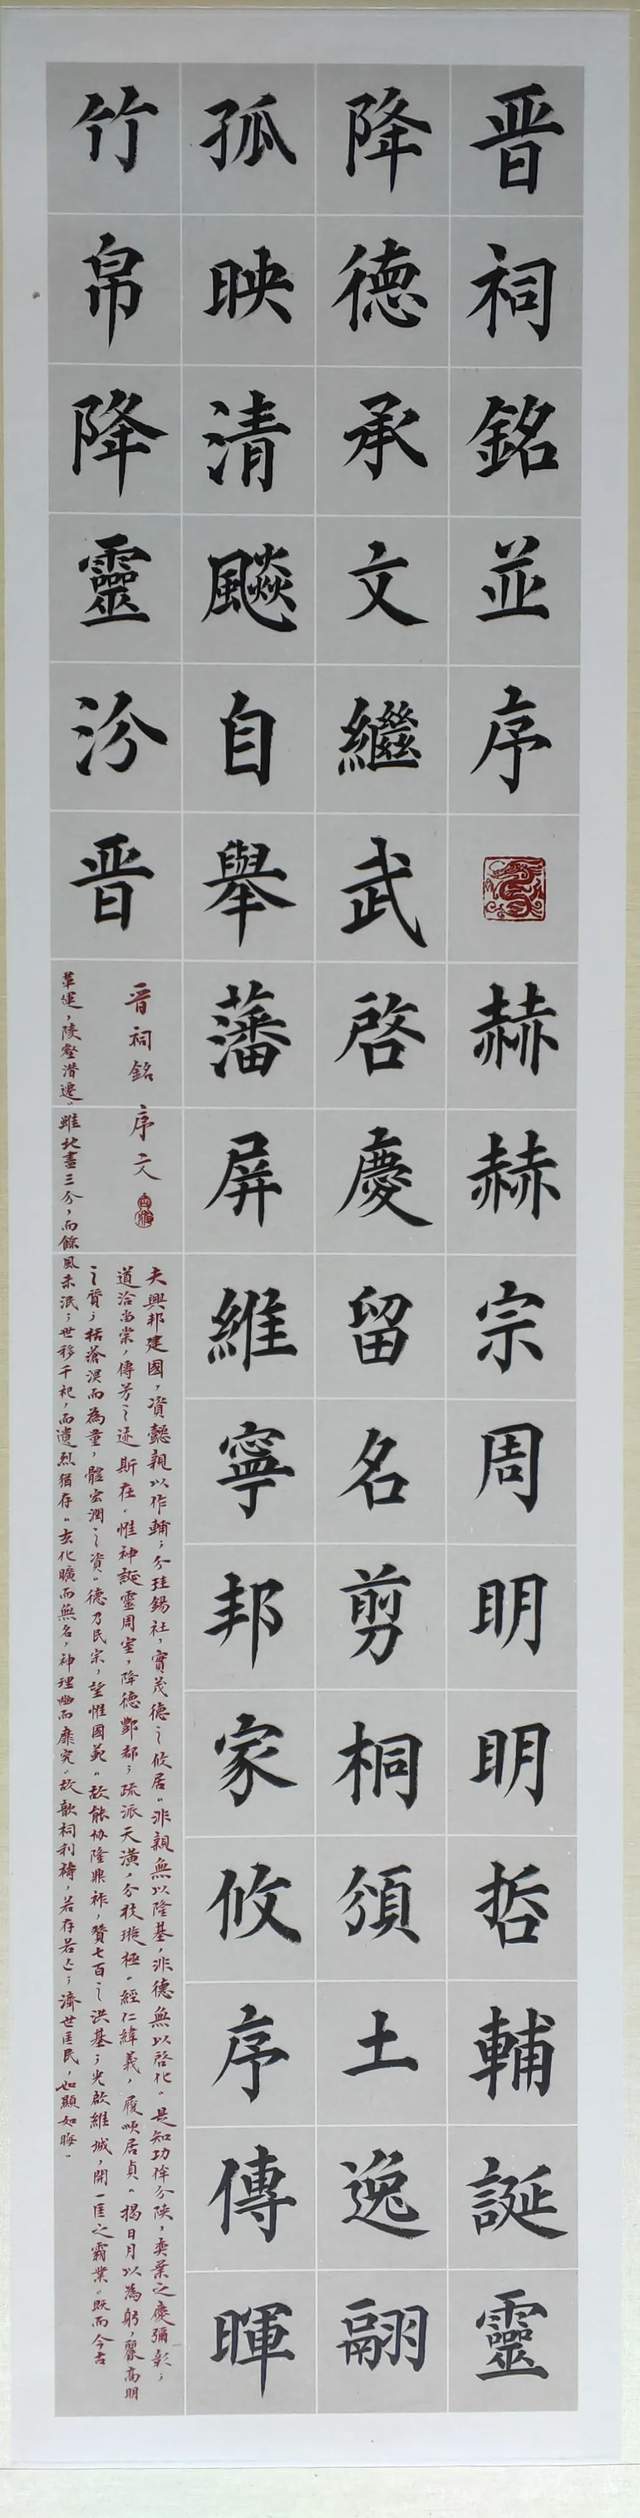 晋祠銘並序赫赫宗周明明哲輔誕靈
降德承文繼武啓慶留名剪桐頒土逸翮
孤映清飈自舉藩屏維寧邦家攸序傳暉
竹帛降靈汾晋
晋祠銘 序文
夫興邦建國，資懿親以作輔；分珪錫社，實茂德之攸居。非親無以隆基，非德無以啓化。是知功侔分陝，奕葉之慶彌彰；
道洽留棠，傳芳之迹斯在。惟神誕靈周室，降德酆都；疏派天潢，分枝璇極。經仁緯義，履順居貞。揭日月以為躬，麗高明
之質；括滄溟而為量，體宏潤之資。德乃民宗，望惟國範。故能協隆鼎祚，贊七百之洪基；光啟維城，開一匡之霸業。既而今古
革運，陵壑潛遷。雖地盡三分，而餘風未泯；世移千祀，而遺烈猶存。玄化曠而無名，神理幽而靡究。故歆祠利禱，若存若亡；濟世匡民，如顯如晦。